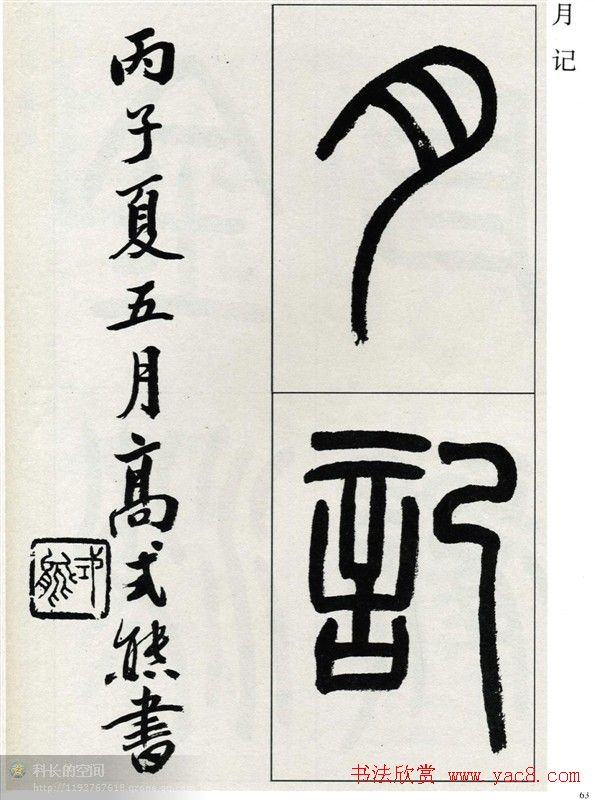 月记
月記
丙子夏五月高式熊書
式熊
科长的空间
http://1192767618.qzone.qq.com
书法欣赏 www.yac8.com
63